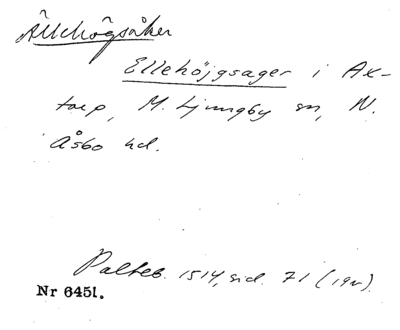 Ällehögsåker
Ellehöjgsager i Ax-
torp, M. Ljungby sn, N.
Åsbo hd.
Palteb. 1514, sid. 71
Nr 6451.